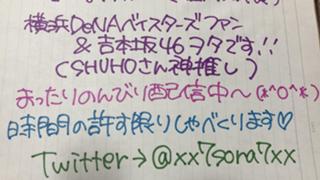 横浜DeNAベイスターズファン
&吉本坂46ヲタです!!
(SHUHOさん神推し)
まったりのんびり配信中〜(*^o^*)
時間の許す限りしゃべくります♡
Twitter→@xx7sora7xx